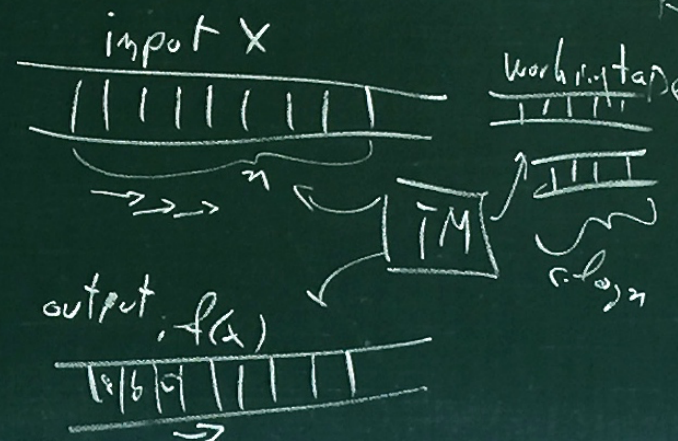 input X
working tape
n
TM
c·log n
output, f(x)
a b